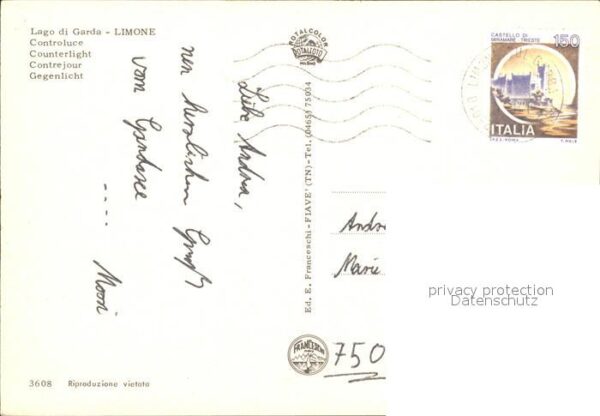 Lago di Garda - LIMONE
Controluce
Counterlight
Contrejour
Gegenlicht
Liebe Andrea,
nen herzlichen Gruß
vom Gardasee
....
ROTALCOLOR
ROTALFOTO
Ed. E. Franceschi - FIAVE' (TN) - Tel. (0465) 75034
FRANCESCHI
CASTELLO DI
MIRAMARE - TRIESTE
150
ITALIA
I.P.Z.S. ROMA
Andre
Marie
750
privacy protection
Datenschutz
3608 Riproduzione vietata